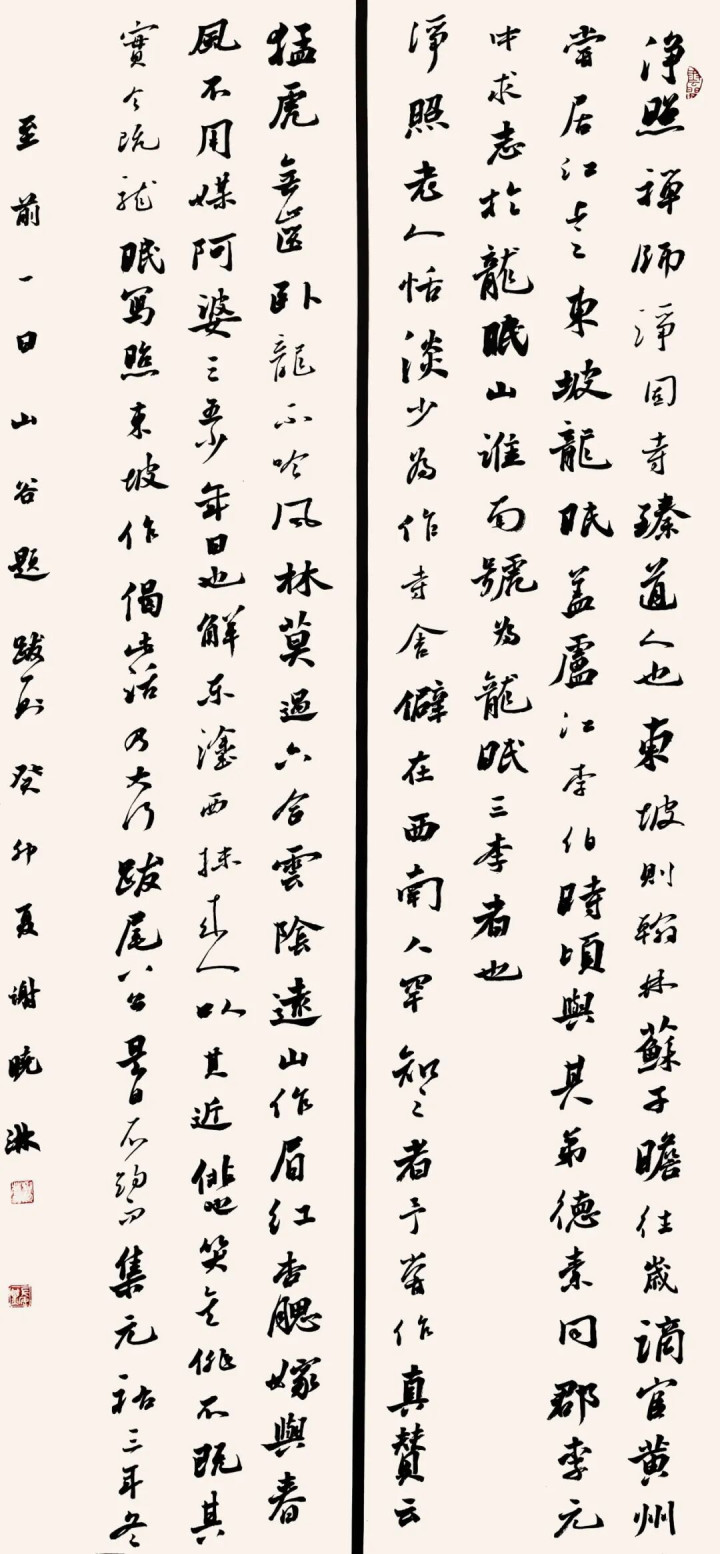 淨照禪師淨因寺臻道人也東坡則翰林蘇子瞻往歲謫官黃州
嘗居江上之東坡龍眠蓋廬江李伯時頃與其弟德素同郡李元
中求志於龍眠山淮南號為龍眠三李者也
淨照老人恬淡少為作寺舍僻在西南人罕知之者予嘗作真贊云
猛虎無齒臥龍不吟風林莫過六合雲陰遠山作眉紅杏腮嫁與春
風不用媒阿婆三五少年日也解東塗西抹來人以其近俳也笑之俳不既其
實今既龍眠寫照東坡作偈此話乃大行跋尾八公是日不約而集元祐三年冬
至前一日山谷題跋一則癸卯夏謝曉淋